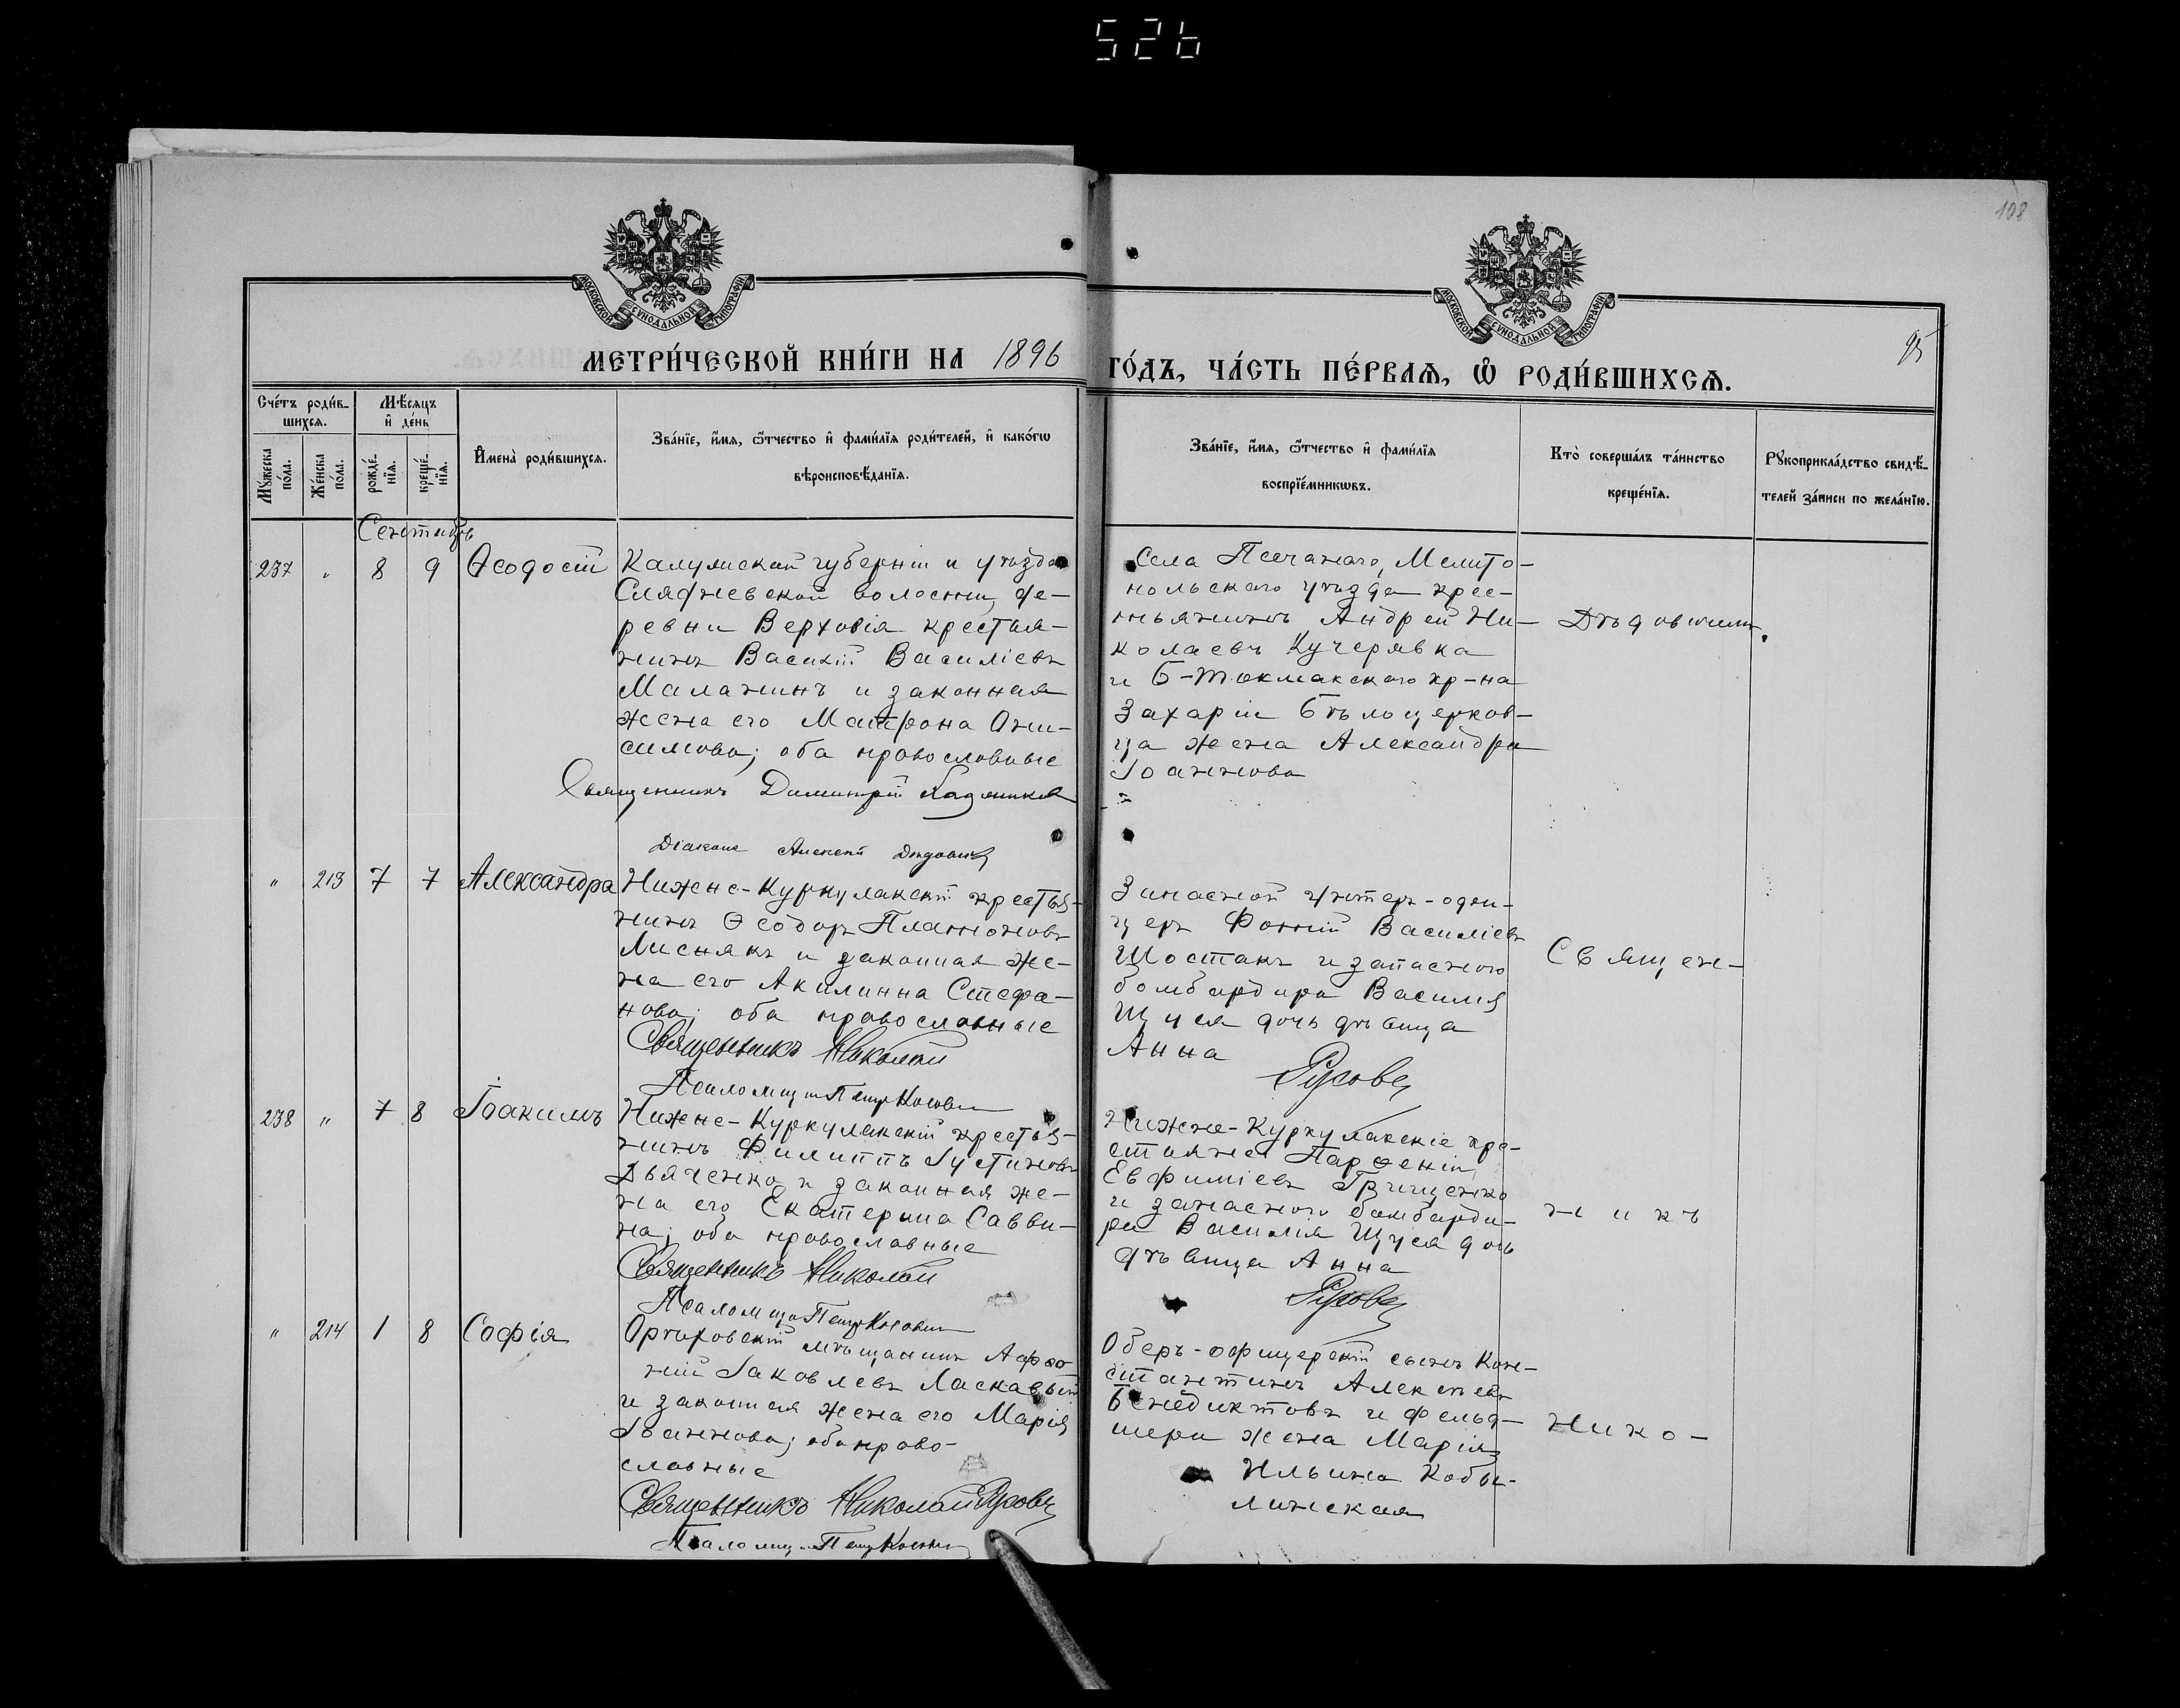 526
108
МОСКОВСКОЙ СѴНОДАЛЬНОЙ ТИПОГРАФІИ
МОСКОВСКОЙ СѴНОДАЛЬНОЙ ТИПОГРАФІИ
МЕТРИ́ЧЕСКОЙ КНИ́ГИ НА 1896
ГО́ДЪ, ЧА́СТЬ ПЕ́РВАЯ, Ѽ РОДИ́ВШИХСѦ.
95
Сче́тъ роди́в-
шихсѧ.
Мѣ́сѧцъ
и҆ де́нь
Мꙋ́жеска
по́ла.
Же́нска
по́ла.
рожде́-
нїѧ.
креще́-
нїѧ.
И҆мена̀ роди́вшихсѧ.
Зва́нїе, и҆́мѧ, ѻ҆́тчество и҆ фами́лїѧ роди́телей, и҆ како́гѡ
вѣроисповѣ́данїѧ.
Зва́нїе, и҆́мѧ, ѻ҆́тчество и҆ фами́лїѧ
воспрїе́мникѡвъ.
Кто̀ соверша́лъ та́инство
креще́нїѧ.
Рꙋкоприкла́дство свидѣ́-
телей за́писи по жела́нїю.
Сентябрь
237 „ 8 9 Ѳеодосій
Калужской губерніи и уѣзда
волости, де-
ревни Верховія крестья-
нинъ Василій Василіевъ
Малахинъ и законная
жена его Матрона Они-
симова; оба православные
Священникъ Димитрій
Діаконъ Алексей Дѣдовичъ
Села Песчанаго, Мелито-
польскаго уѣзда крес-
тьянинъ Андрей Ни-
колаевъ Кучерявка
и Б-Токмакскаго кр-на
Захаріи Бѣлоцерков-
ца жена Александра
Іоаннова
Дѣдовичъ.
„ 213 7 7 Александра
Нижне-Куркулакскій крестья-
нинъ Ѳеодоръ Платоновъ
Лиснякъ и законная же-
на его Акилинна Стефа-
нова; оба православные
Священникъ Николай
Псаломщ. Петръ
Запасной унтеръ-офи-
церъ Фотій Василіевъ
Шостакъ и запаснаго
бомбардира Василія
Щуся дочь дѣвица
Анна
Русовъ
Священ-
238 „ 7 8 Іоакимъ
Нижне-Куркулакскій крестья-
нинъ Филиппъ Іустиновъ
Дьяченко и законная же-
на его Екатерина Савви-
на; оба православные
Священникъ Николай
Псаломщ. Петръ
Нижне-Куркулакскіе кре-
стьяне Парѳеній
Евфиміевъ Грищенко
и запаснаго бомбарди-
ра Василія Щуся дочь
дѣвица Анна
Русовъ
никъ
„ 214 1 8 Софія
Орѣховскій мѣщанинъ Афо-
ній Іаковлевъ Ласкавый
и законная жена его Марія
Іоаннова; оба право-
славные
Священникъ Николай Русовъ
Псаломщ. Петръ
Оберъ-офицерскій сынъ Кон-
стантинъ Алексѣевъ
Бенедиктовъ и фельд-
шера жена Марія
Ильина Кобы-
линская
Нико-